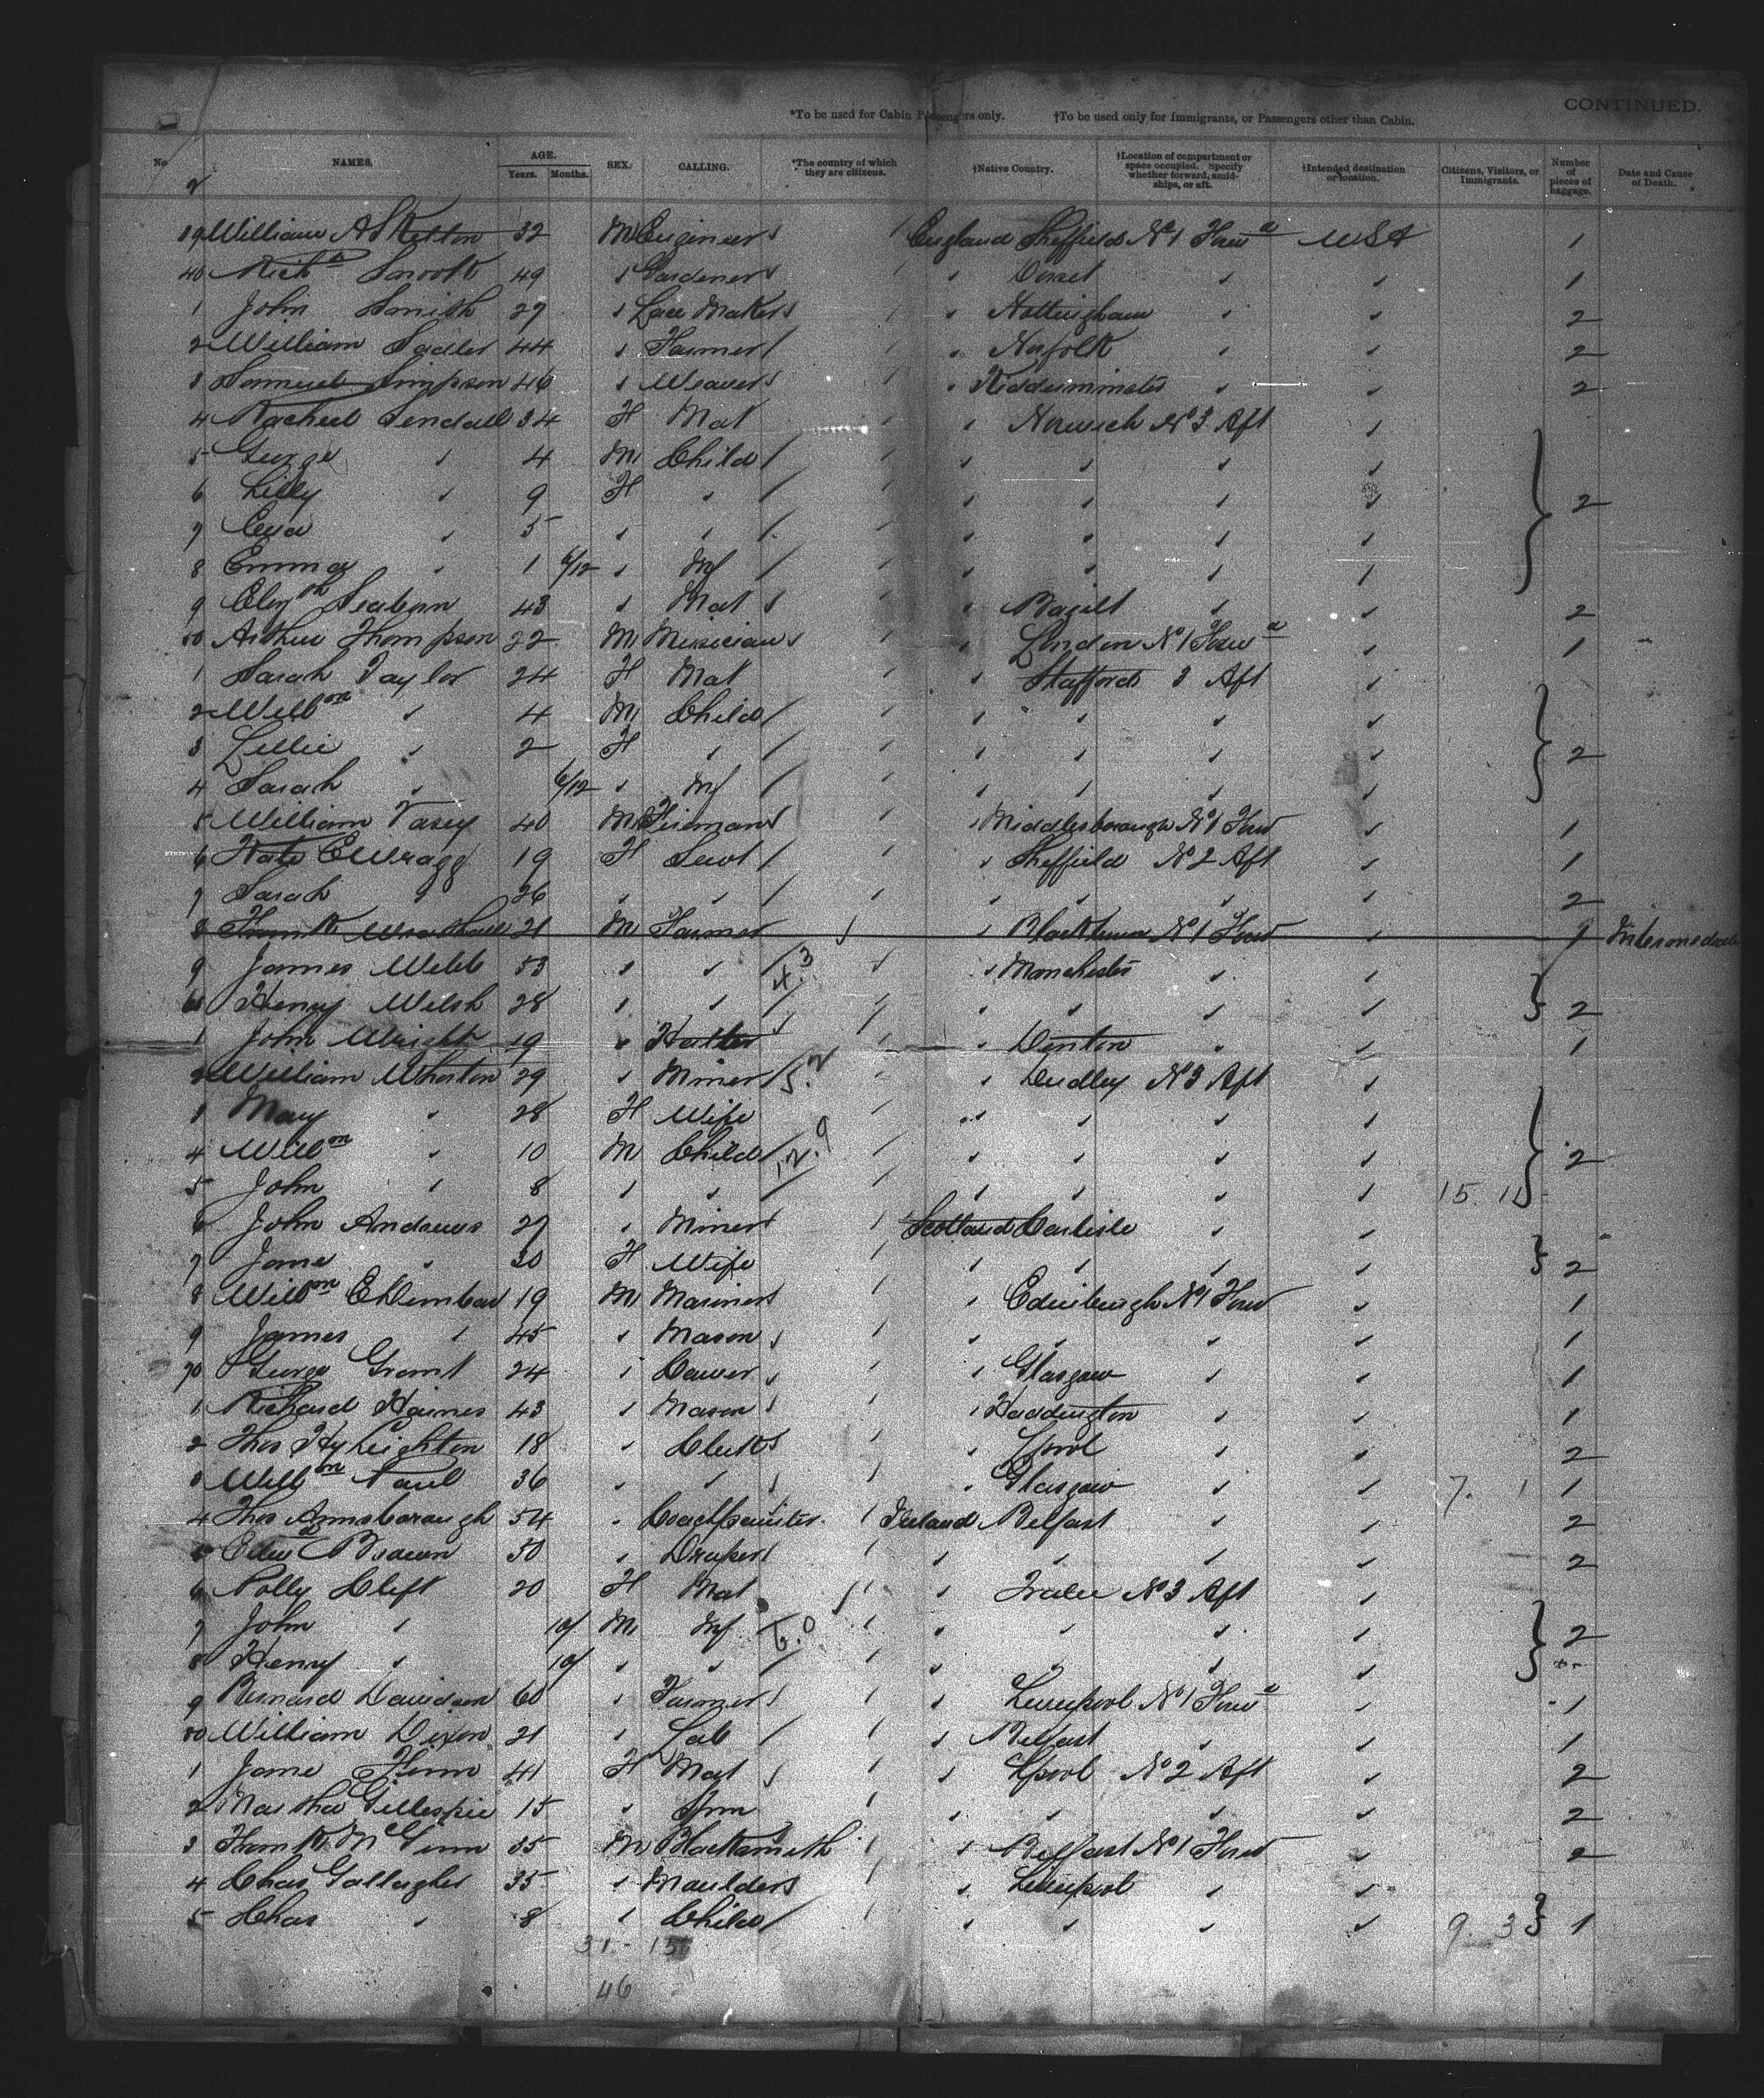 CONTINUED.
*To be used for Cabin Passengers only. †To be used only for Immigrants, or Passengers other than Cabin.
No. NAMES. AGE. Years. Months. SEX. CALLING. *The country of which they are citizens. †Native Country. †Location of compartment or space occupied. Specify whether forward, amidships, or aft. †Intended destination or location. Citizens, Visitors, or Immigrants. Number of pieces of baggage. Date and Cause of Death.
39 William A Skelton 32 M Engineer England Sheffield No 1 Forwd USA 1
40 Richd Snook 49 " Gardener " Dorset " " 1
1 John Smith 27 " Lace Maker " Nottingham " " 2
2 William Sadler 44 " Farmer " Norfolk " " 2
3 Samuel Simpson 46 " Weaver " Kidderminster " " 2
4 Racheel Sendall 34 F Mat " Norwich No 3 Aft "
5 George " 4 M Child " " " "
6 Lilly " 9 F " " " " " 2
7 " 5 " " " " " "
8 Emma " 1 6/12 " Inf " " " "
9 Elizth Seaborn 43 " Mat " " " 2
50 Arthur Thompson 22 M Musician " London No 1 Forwd " 1
1 Sarah Taylor 24 F Mat " Stafford 3 Aft "
2 Willm " 4 M Child " " " "
3 Lillie " 2 F " " " " " 2
4 Sarah " 6/12 " Inf " " " "
5 William Vasey 40 M Fireman " Middlesborough No 1 Forw " 1
6 Kate E Wragg 19 F Servt " Sheffield No 2 Aft " 1
7 Sarah " 26 " " " " " " 2
8 Frank 21 M Farmer " Blackburn No 1 Forw " 1 Intermediate
9 James Webb 53 " " 4.3 " Manchester " "
60 Henry Welsh 28 " " " " " " 2
1 John Wright 19 " Hatter " Denton " " 1
2 William Wharton 29 " Miner 5.2 " Dudley No 3 Aft "
3 Mary " 28 F Wife " " " "
4 Willm " 10 M Child 12.9 " " " " 2
5 John " 8 " " " " " " 15. 11
6 John Andrews 27 " Miner Scotland Carlisle " "
7 Jane " 30 F Wife " " " " 2
8 Willm E Dunbar 19 M Mariner " Edinburgh No 1 Forw " 1
9 James " 45 " Mason " " " " 1
70 George Grant 24 " " Glasgow " " 1
1 Richard Haines 43 " Mason " Haddington " " 1
2 Thos Hy Leighton 18 " Clerk " Lpool " " 2
3 Willm Paul 36 " " " Glasgow " " 7. 1 1
4 Thos Annsborough 54 " Coachpainter Ireland Belfast " " 2
5 Edwd Brown 50 " Draper " " " " 2
6 Polly Cleft 20 F Mat " Tralee No 3 Aft "
7 John " 10/ M Inf 6.0 " " " " 2
8 Henry " 10/ " " " " " "
9 Bernard Davidson 60 " Farmer " Liverpool No 1 Forwd " 1
80 William Dixon 21 " Lab " Belfast " " 1
1 Jane Finn 41 F Mat " Lpool No 2 Aft " 2
2 Martha Gillespie 15 " Spin " " " " 2
3 Frank McGinn 35 M Blacksmith " Belfast No 1 Forw " 2
4 Chas Gallagher 35 " Moulder " Liverpool " "
5 Chas " 8 " Child " " " " 9. 3 1
31 - 15
46